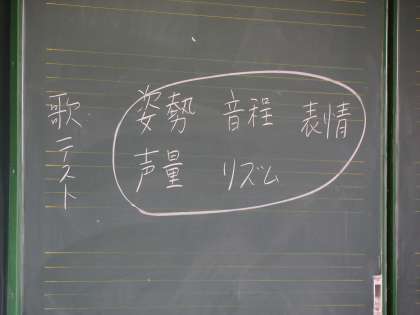 歌テスト
姿勢 音程 表情
声量 リズム